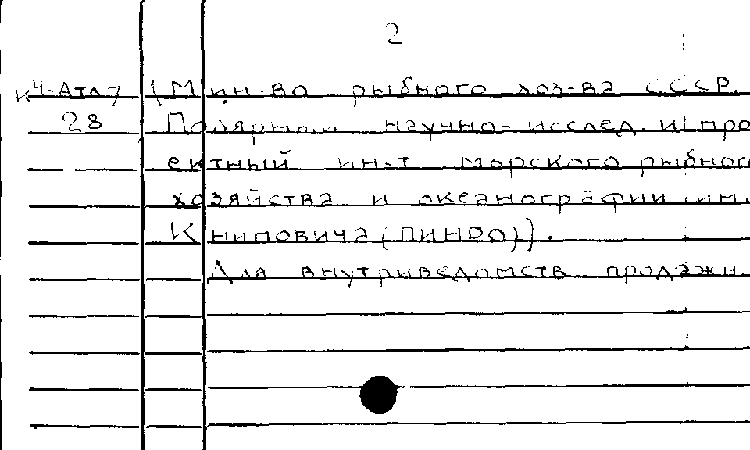 2
К4-Атл7 (Мин-во рыбного хоз-ва СССР.
28 Полярный научно-исслед. и про
ектный ин-т морского рыбного
хозяйства и океанографии им.
Книповича (ПИНРО)).
Для внутриведомств. продажи